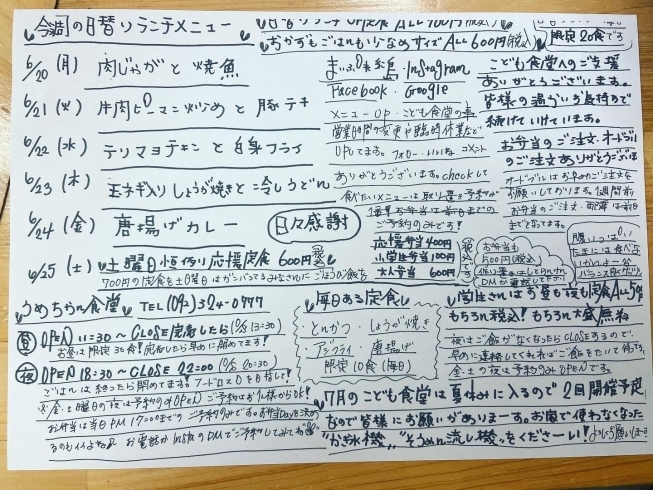 今週の日替りランチメニュー
6/20 (月) 肉じゃがと焼魚
6/21 (火) 牛肉ピーマン炒めと豚テキ
6/22 (水) テリマヨチキンと白身フライ
6/23 (木) 玉子ギ入りしょうが焼きと冷しうどん
6/24 (金) 唐揚げカレー
日々感謝
6/25 (土) 土曜日恒例り応援定食 600円
700円の定食も土曜日はがんばってるみなさんにごほうび飯を
おかずもごはんも少なめサイズ ALL 600円(税込)
限定20食です
まいぷれ糸島・Instagram
Facebook・Google
メニューUP・こども食堂の事
営業日間の変更や臨時休業など
UPしてます。フォロー・いいね・コメント
ありがとうございます。checkして
食べたいメニューは取り置き予約が
ご予約のみです!
応援弁当 400円
小学生弁当 100円
大人弁当 600円
お弁当も
500円(税込)
こども食堂へのご支援
ありがとうございます。
皆様の温かいお気持ちで
続けていけています。
お弁当のご注文・オードブル
のご注文ありがとうございます
オードブルはお早めのご注文を
お願いしております。1週間前
お弁当のご注文・配達は前日
までとなってます。
腹いっぱい
たまには食べな
うめちゃん食堂
TEL(092)324-0777
昼 OPEN 11:30〜CLOSE 完売したら(O/S 13:30)
お昼は限定30食!完売したら早めに閉めてます!
夜 OPEN 18:30〜CLOSE 22:00 (O/S 20:30)
ごはんは終わったら閉めてます!フードロス0を目指して!
※金・土曜日の夜は予約のみOPEN♪ ご予約はお1人様からOK!
お弁当は当日PM17:00までのご予約のみです。お弁当Dayを決め
るのもイイよね♪ お電話かInstaのDMでご予約してみてね
毎日ある定食
・とんかつ ・しょうが焼き
・アジフライ ・唐揚げ
限定10食(毎日)
学生さんはお昼も夜も定食ALL 50円
もちろん税込! もちろん大盛無料
夜はご飯がなくなったらCLOSEするので、
早めに連絡してくれればご飯をたいて待ってる
金・土の夜は予約のみOPENです。
7月のこども食堂は夏休みに入るので2回開催予定
なので皆様にお願いがありまーす。お家で使わなくなった
"かき氷機""そうめん流し機"をくださーい!よろしく願いしまーす!